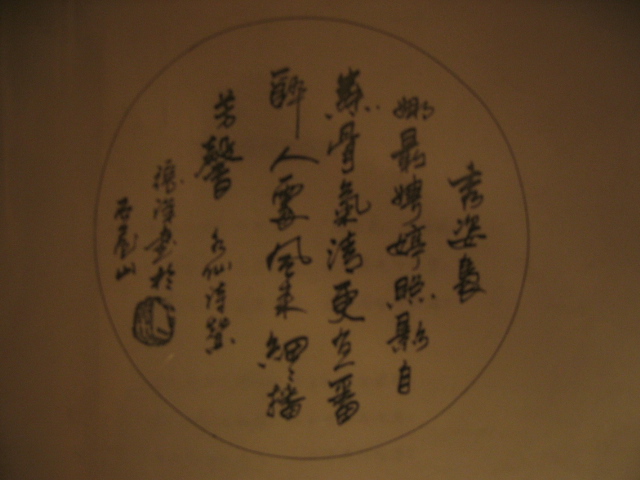 秀姿裊
娜最娉婷照影自
骨氣清更一番
醉人處風來細細播
芳馨 水仙詩
書於
石屋山